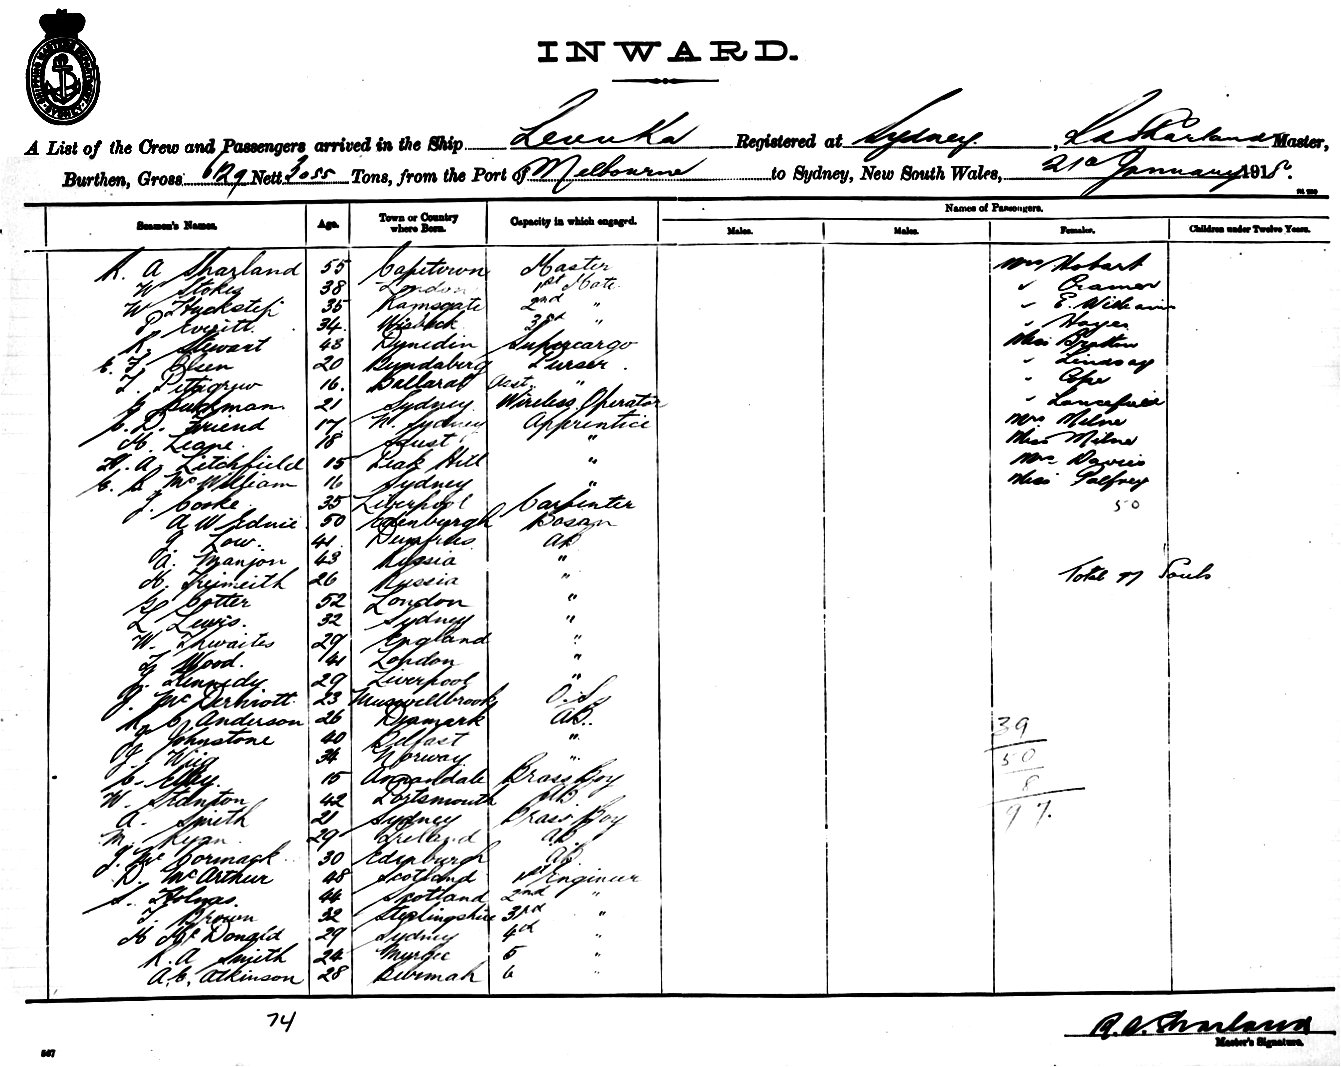 INWARD.
A List of the Crew and Passengers arrived in the Ship Levuka Registered at Sydney, R A Sharland Master,
Burthen, Gross 6129 Nett 3055 Tons, from the Port of Melbourne to Sydney, New South Wales, 21st January 1918.
Seamen's Names. Age. Town or Country where Born. Capacity in which engaged. Names of Passengers.
Males. Males. Females. Children under Twelve Years.
R. A Sharland 55 Capetown Master Mrs Hobart
W Stokes 38 London 1st Mate " Cramer
W Huckstep 35 Ramsgate 2nd " " E. William
P. Everitt 34 Wisbeck 3rd " " Hayes
R. Stewart 43 Dunedin Supercargo Miss Bratton
C. F. Olsen 20 Bundaberg Purser " Lindsay
T. Pettigrew 16. Ballarat Asst. " " Cope
G Bushman 21 Sydney Wireless Operator " Lancefield
C. D. Friend 17 N. Sydney Apprentice Mrs Milne
H. Leane 18 " Miss Milne
H. A. Litchfield 15 Peak Hill " Mrs Davies
C. S. McWilliam 16 Sydney " Miss Palfrey
J. Cooke 35 Liverpool Carpenter 50
A W Ednie 50 Edenburgh Bosun
J Low. 41 Dumfries AB
A. Manjon 43 Russia "
K. Treimeith 26 Russia " Total 97 Souls
G Cotter 52 London "
L Lewis. 32 Sydney "
W. Thwaites 29 England "
J Wood. 41 London "
J. Kennedy 29 Liverpool "
J. McDermott 23 Muswellbrook O.S.
R C Anderson 26 Denmark AB. 39
Johnstone 40 Belfast "
H. Wiig 34 Norway " 50
C. Elley. 15 Annandale Brass Boy 8
W. Stanton 42 Portsmouth AB
A. Smith 21 Sydney Brass Boy 97.
M. Ryan. 29 Ireland AB
J. McCormack 30 Edinburgh AB.
D. McArthur 48 Scotland 1st Engineer
S. Holmes. 44 Scotland 2nd "
T. Brown 32 Sterlingshire 3rd "
H McDonald 29 Sydney 4th "
R. A Smith 24 Mudgee 5 "
A. C. Atkinson 28 Burmah 6 "
74
R. A. Sharland
Master's Signature.
567